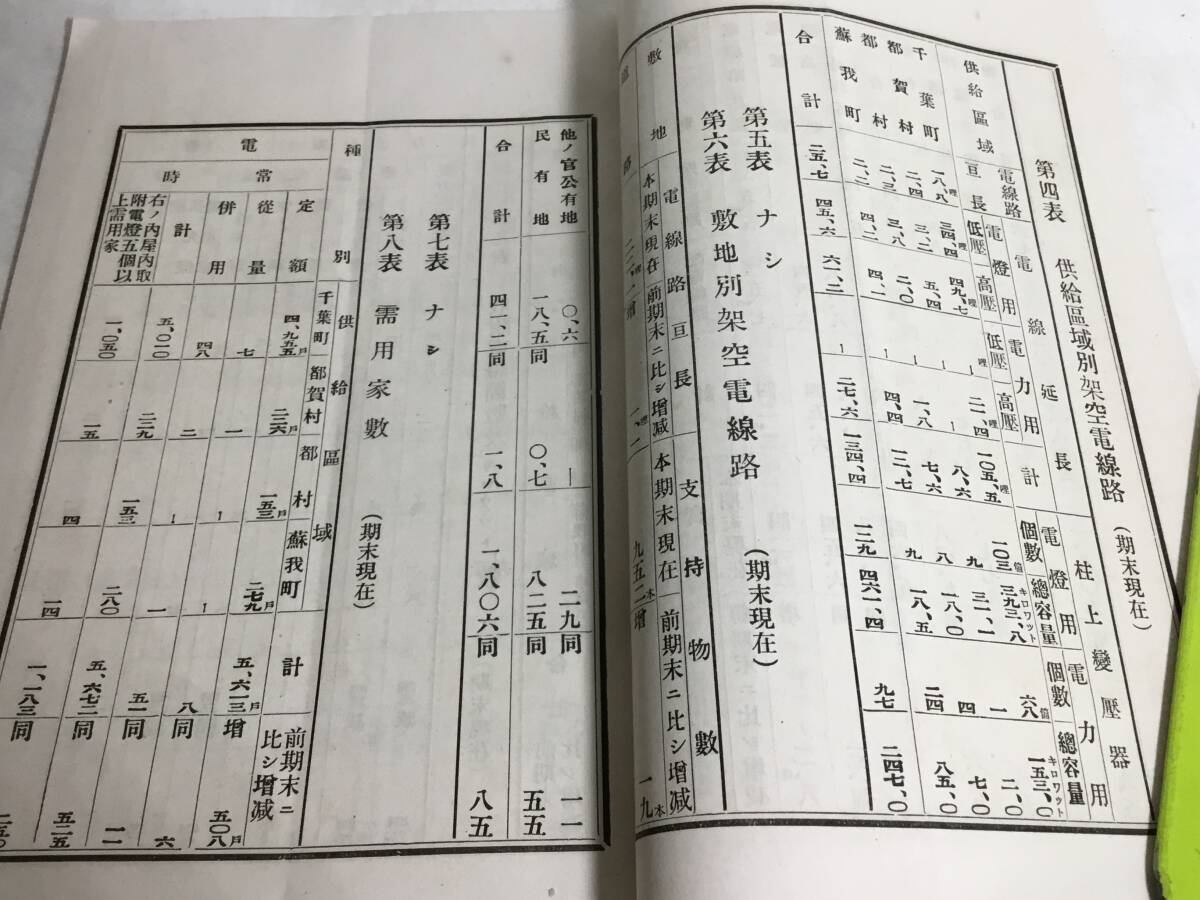 第四表 供給區域別架空電線路 (期末現在)
供給區域 電線路亘長 電線延長 柱上變壓器
電燈用 電力用 計 電燈用 電力用
低壓 高壓 低壓 高壓 個數 總容量 個數 總容量
千葉町 一八、八粁 三四、四粁 四九、七粁 ー粁 二一、四粁 一〇五、五粁 一〇三個 三九三、八キロワット 六八個 一五三、〇キロワット
都賀村 二、四 三、二 五、四 ー ー 八、六 九 三一、一 一 二、〇
都村 二、三 三、八 二、〇 ー 一、八 七、六 八 一八、〇 四 七、〇
蘇我町 二、二 四、二 四、一 ー 四、四 一二、七 九 一八、五 二四 八五、〇
合計 二五、七 四五、六 六一、二 ー 二七、六 一三四、四 一二九 四六一、四 九七 二四七、〇
第五表 ナシ
第六表 敷地別架空電線路 (期末現在)
敷地 電線路亘長 支持物數
本期末現在 前期末ニ比シ増減 本期末現在 前期末ニ比シ増減
九五二本増 一九本
他ノ官公有地 〇、六 ー 二九同 一一
民有地 一八、五同 〇、七 八二五同 五五
合計 四一、二同 一、八 一、八〇六同 八五
第七表 ナシ
第八表 需用家數 (期末現在)
種別 供給區域 計 前期末ニ比シ増減
千葉町 都賀村 都村 蘇我町
電
常時
定額 四、九五五戶 二二六戶 一五三戶 二七九戶 五、六一三戶増 五〇八戶
從量 七 一 ー ー 八同 六
併用 四八 二 ー 一 五一同 一一
計 五、〇一〇 二二九 一五三 二八〇 五、六七二同 五二五
右ノ内屋内取附電燈五個以上需用家 一、〇五〇 一一五 四 一四 一、一八三同 二五〇